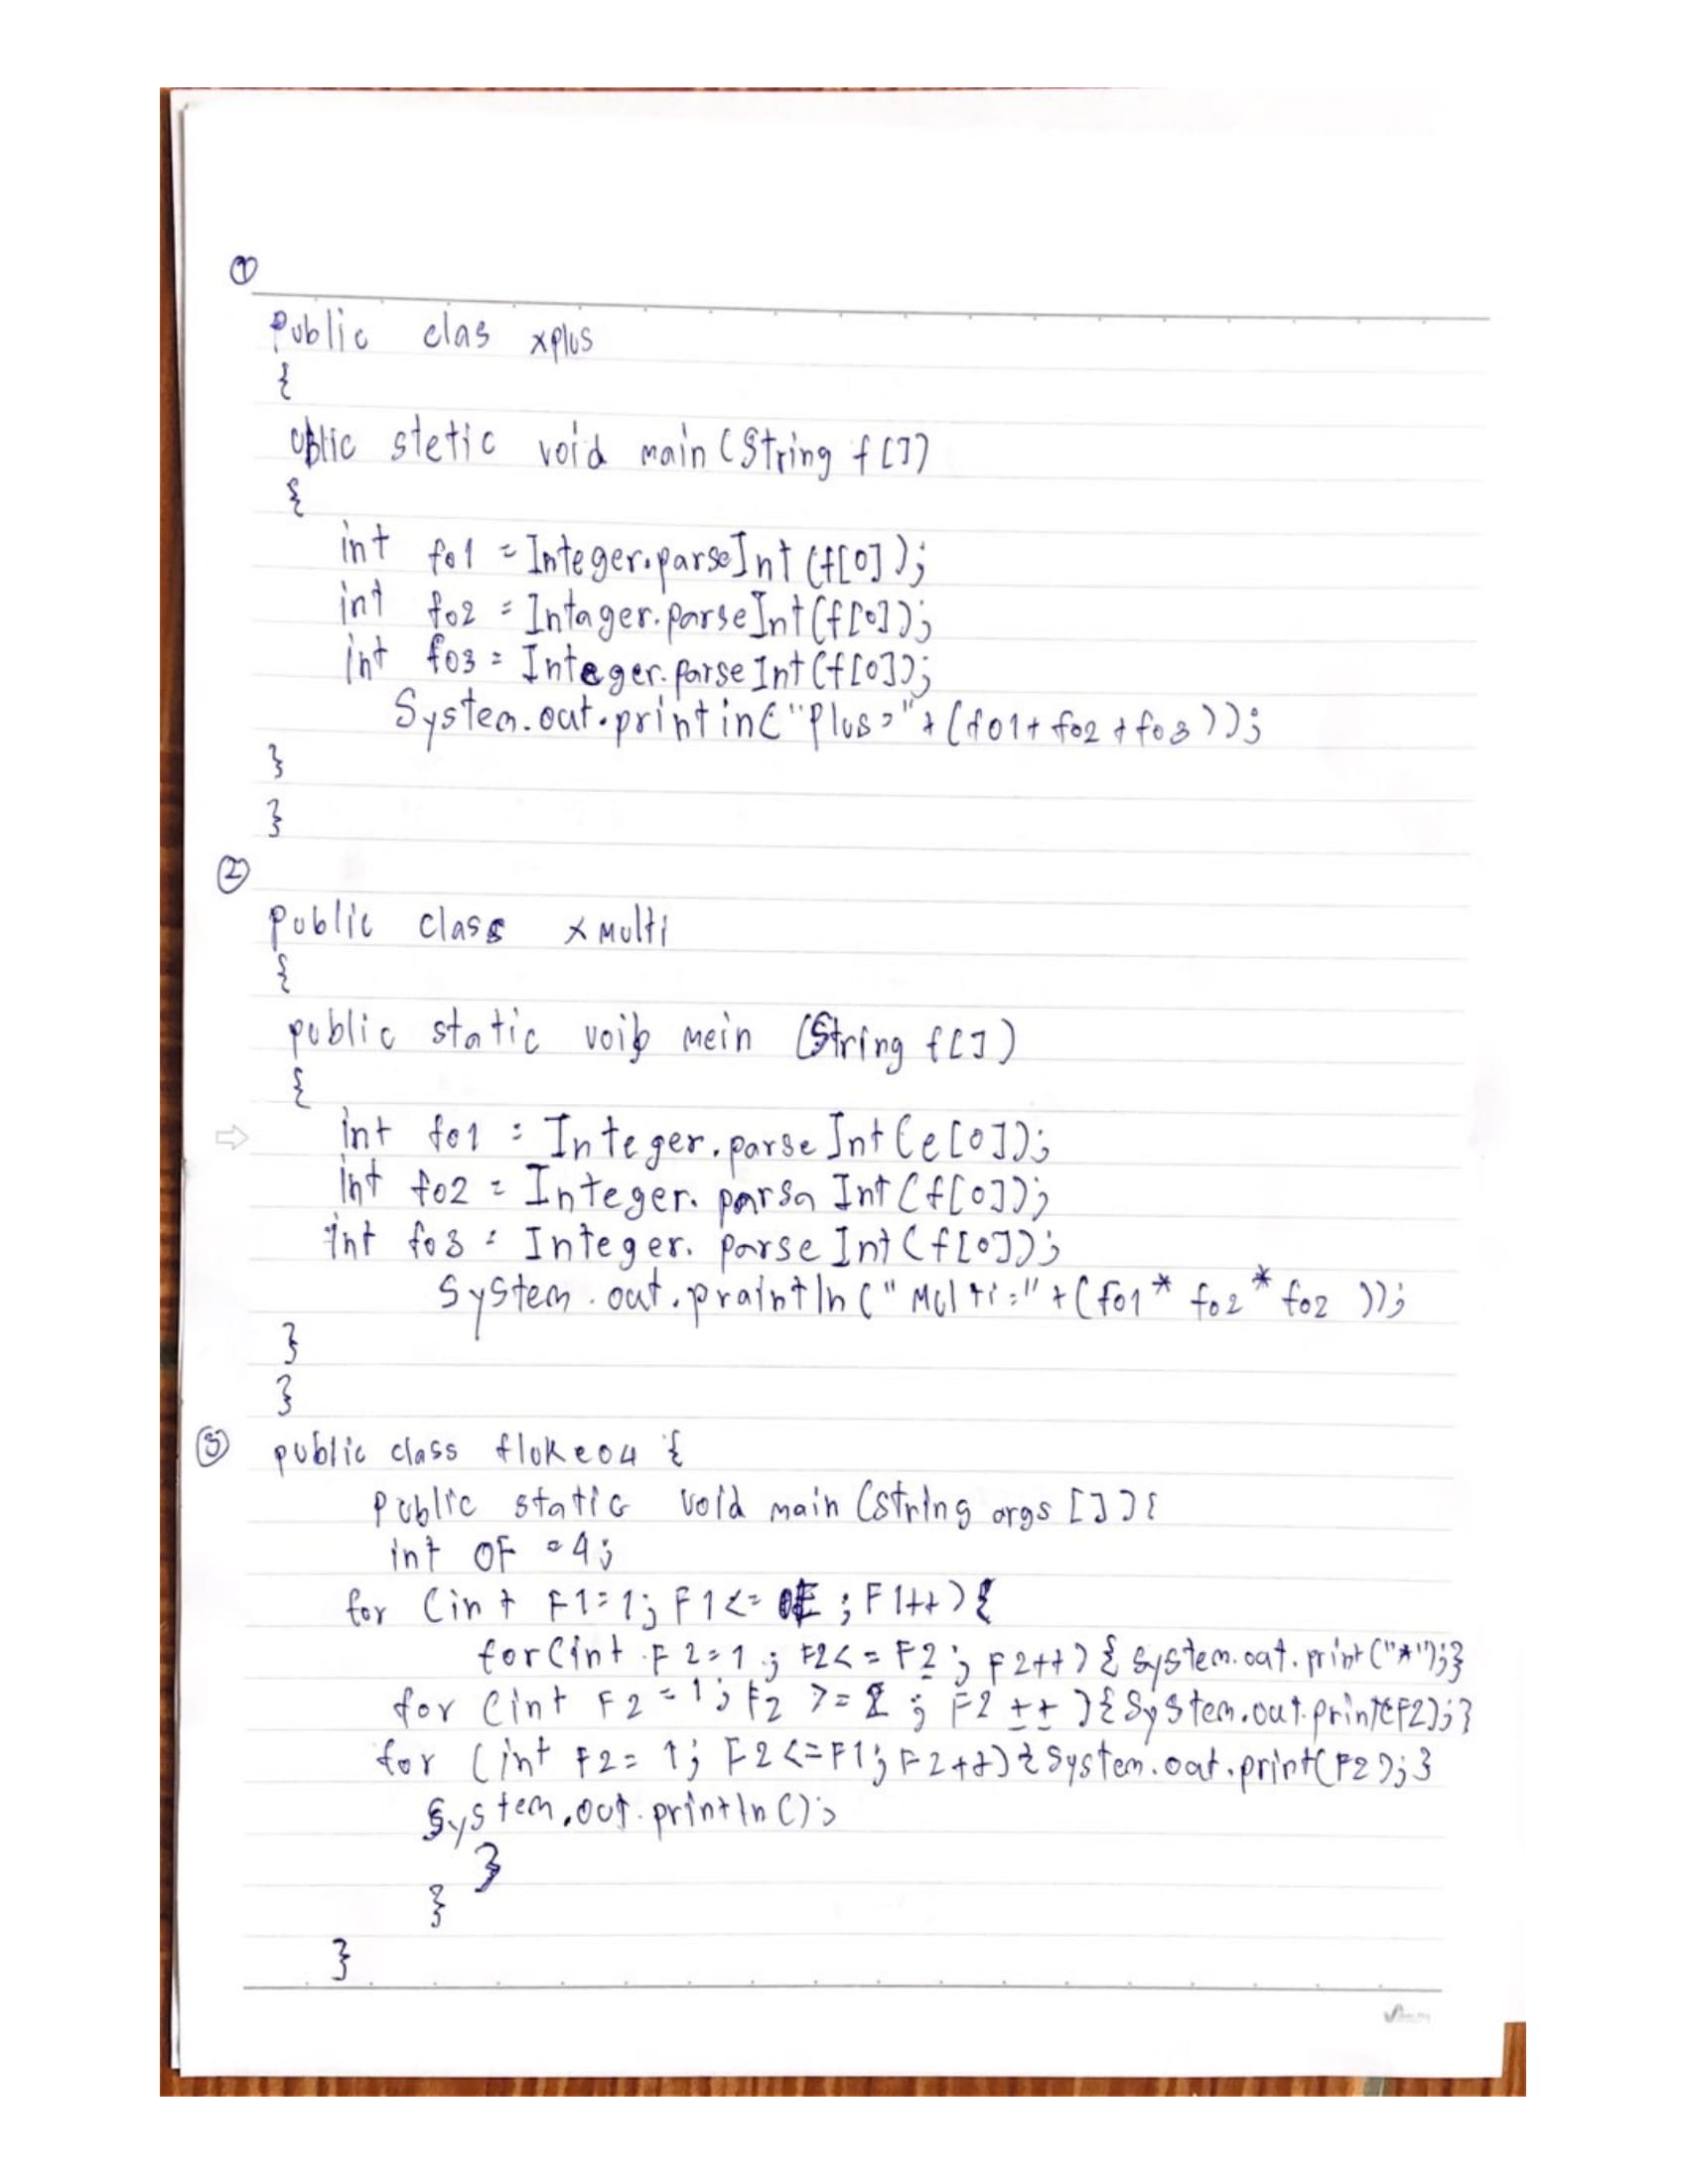 ①
Public clas xplus
{
ublic stetic void main (String f[])
{
int fo1 = Integer.parseInt (f[0]);
int fo2 = Intager.parseInt(f[0]);
int fo3 = Integer.parseInt(f[0]);
System.out.printin("Plus="+(fo1+fo2+fo3));
}
}
②
public class xMulti
{
public static voib mein (String f[])
{
int fo1 = Integer.parseInt(e[0]);
int fo2 = Integer.parsa Int(f[0]);
int fo3 = Integer. parse Int(f[0]);
System.out.praintln("Multi="+(fo1* fo2*fo2 ));
}
}
③ public class flukeo4 {
public static void main (string args []){
int OF =4;
for (int F1=1; F1<= OF ; F1++){
for(int F2=1 ; F2<=F2 ; F2++){ System.oat.print("*");}
for (int F2=1; F2 >= ; F2++){System.out.print(F2);}
for (int F2= 1; F2<=F1; F2++){System.oat.print(F2);}
System.out.println();
}
}
}